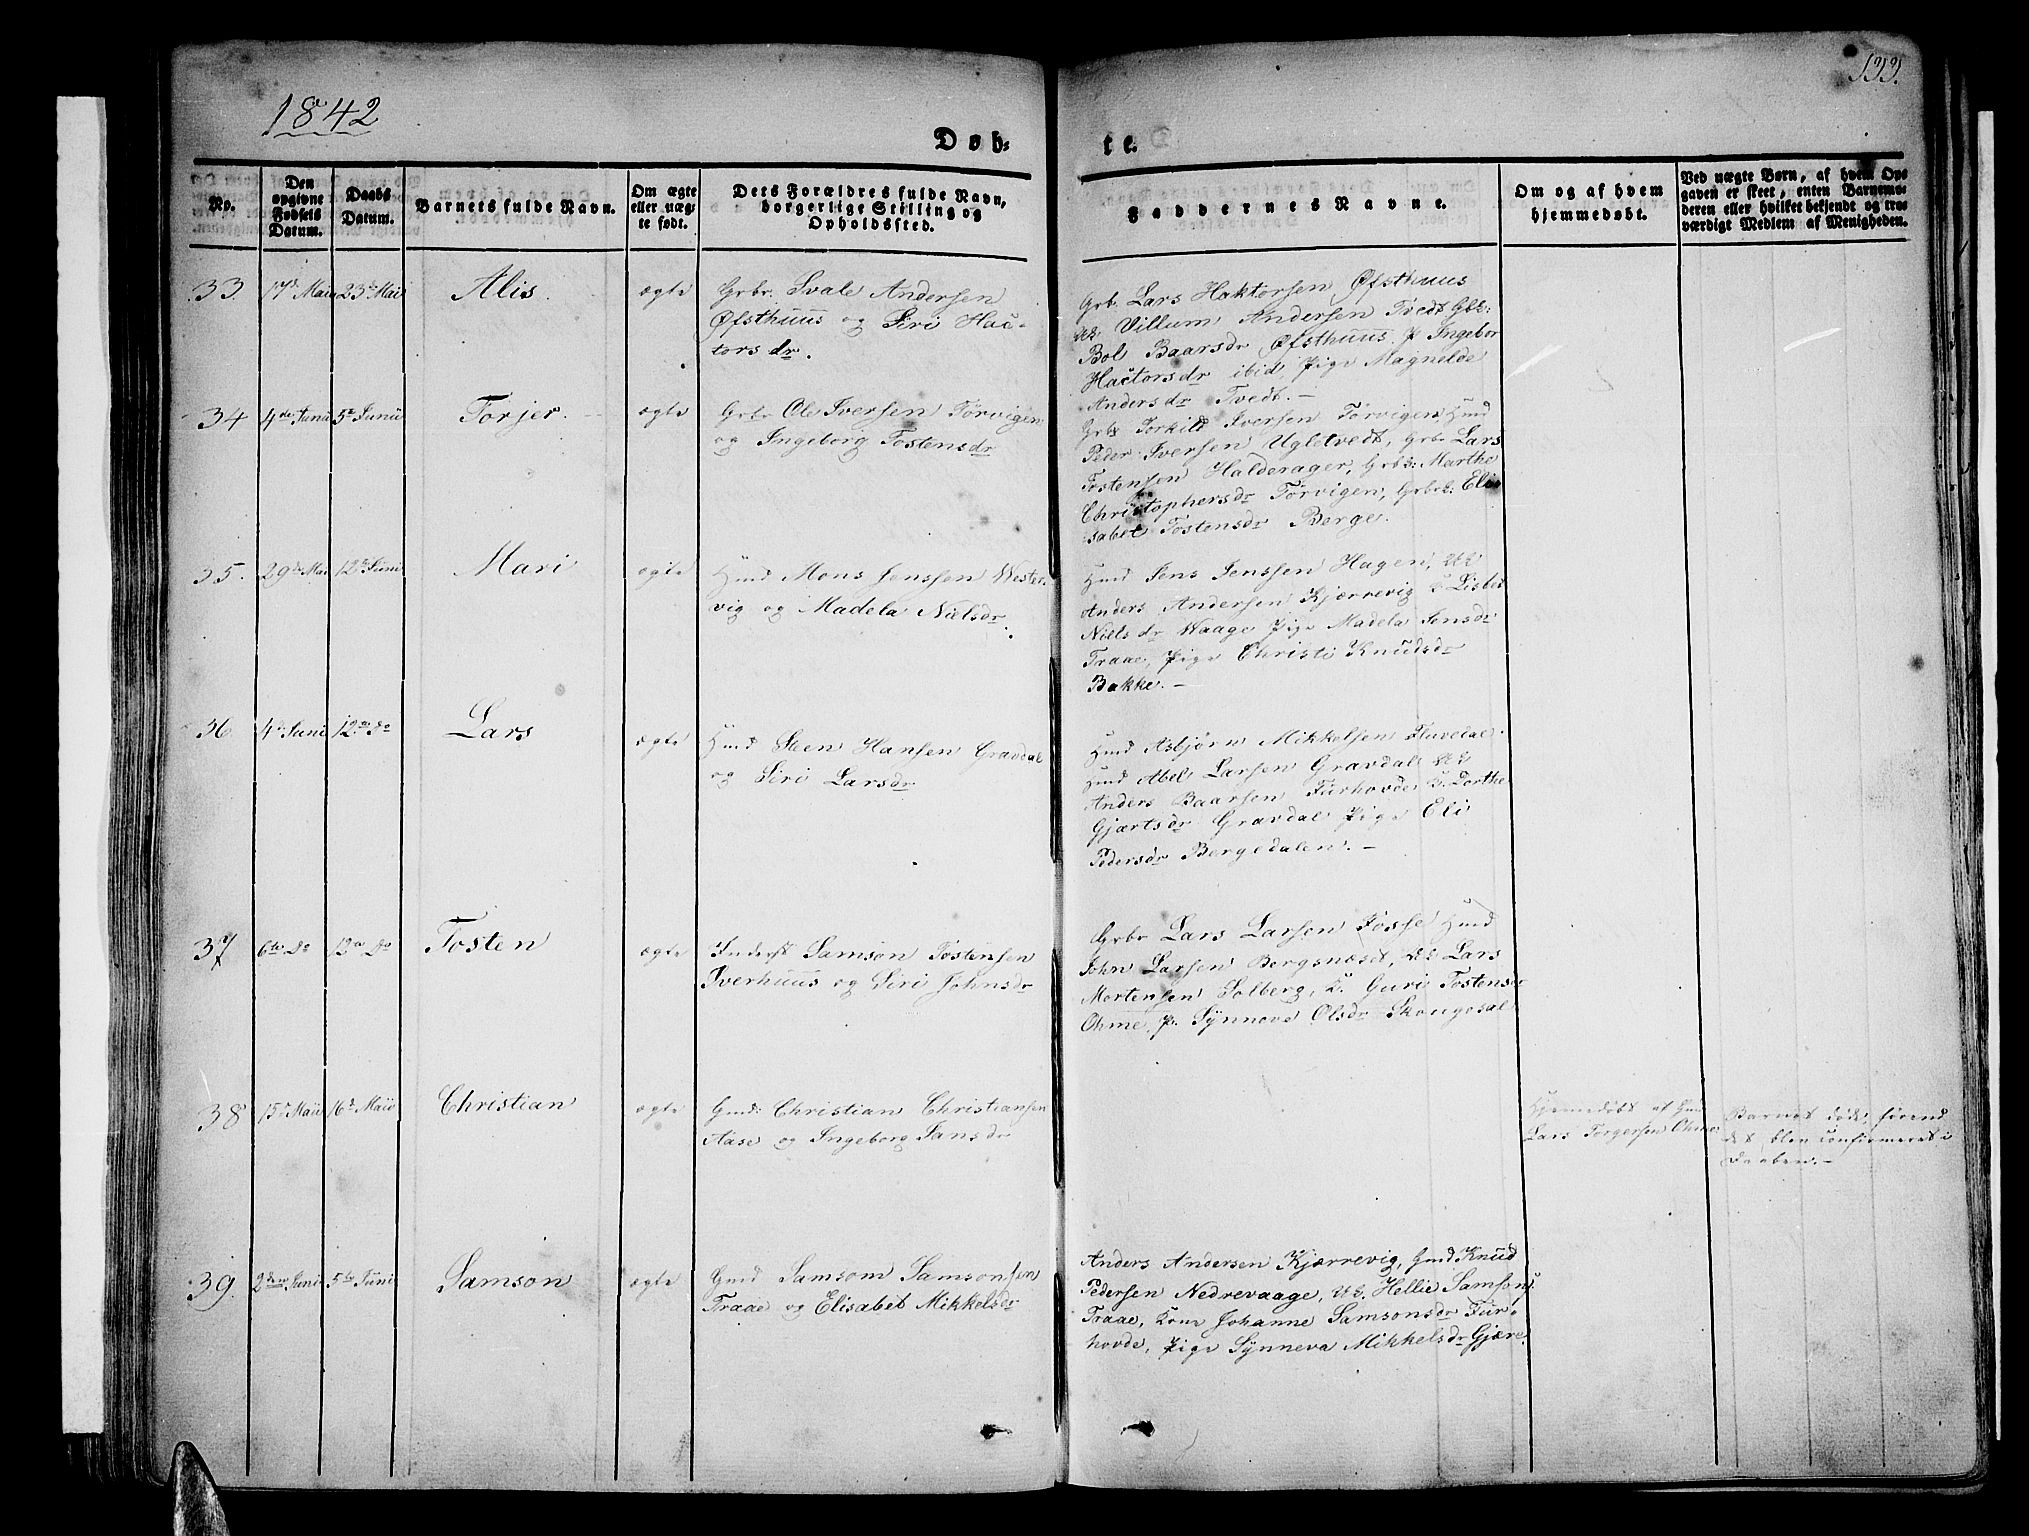 1842
133.
Døb-
te.
No.
Den opgivne Fødsels Datum.
Daabs Datum.
Barnets fulde Navn.
Om ægte eller uægte født.
Dets Forældres fulde Navn, borgerlige Stilling og Opholdssted.
Faddernes Navne.
Om og af hvem hjemmedøbt.
Ved uægte Børn, af hvem Opgaven er skeet, enten Barnemoderen eller hvilket bekjendt og troværdigt Medlem af Menigheden.
33. 17de Maii 23de Mai Alis. ægte
Grbr. Svale Andersen
Øfsthuus og Siri Hac-
torsdr.
Grb. Lars Haktorsen Øfsthuus
Villum Andersen Tvedt Gbk:
Bol Baarsdr Øfsthuus. P Ingebor
Hactorsdr ibid, Pige Magnelde
Andersdr Tvedt. —
34 4de Junii 5te Junii Torjer. ægte
Grbr Ole Iversen Torvigen
og Ingeborg Tostensdr
Grbr Torkild Iversen Torvigen, Hmd
Peder Iversen Ugletvedt, Grbr Lars
Tostensen Halderager, Grbk: Marthe
Christophersdr Torvigen, Grbk: Eli-
sabet Tostensdr Berge.
35. 29de Mai 12te Juni Mari ægte
Hmd Mons Jenssen Wester-
vig og Madela Nielsdr.
Hmd Jens Jenssen Hagen, UK
Anders Andersen Kjærrevig K Lisbet
Nielsdr Waage Pige Madela Jensdr
Traae, Pige Christi Knudsdr
Bakke. —
36. 4de Juni 12te Do Lars ægte
Hmd Steen Hansen Gravdal
og Siri Larsdr
Hmd Asbjørn Mikkelsen Fluvedal.
Hmd Abel Larsen Gravdal UK
Anders Baarsen Furhovde K. Dorthe
Gjærtsdr Gravdal Pige Eli
Pedersdr Bergedalen. —
37 6te Do 12te Do Tosten ægte
Inderst Samson Tostensen
Iverhuus og Siri Johnsdr
Grbr Lars Larsen Fosse Hmd
John Larsen Bergsnæset, UK Lars
Mortensen Solberg, K. Guri Tostensdr
Ohme, P. Synneve Olsdr Skougesal
38 15de Maii 16de Maii Christian ægte
Gmd: Christian Christiansen
Aase og Ingeborg Jansdr
Hjemmedøbt af Gmd
Lars Torgersen Ohme.
Barnet døde, førend
det blev confirmeret i
Daaben. —
39. 2den Juni 5te Juni Samson ægte
Gmd Samsom Samsonsen
Traae og Elisabet Mikkelsdr
Anders Andersen Kjærrevig, Gmd Knud
Pedersen Nedrevaage, UK. Hellie Samsons.
Traae, Kone Johanne Samsonsdr Fur-
hovde, Pige Synneva Mikkelsdr Gjære